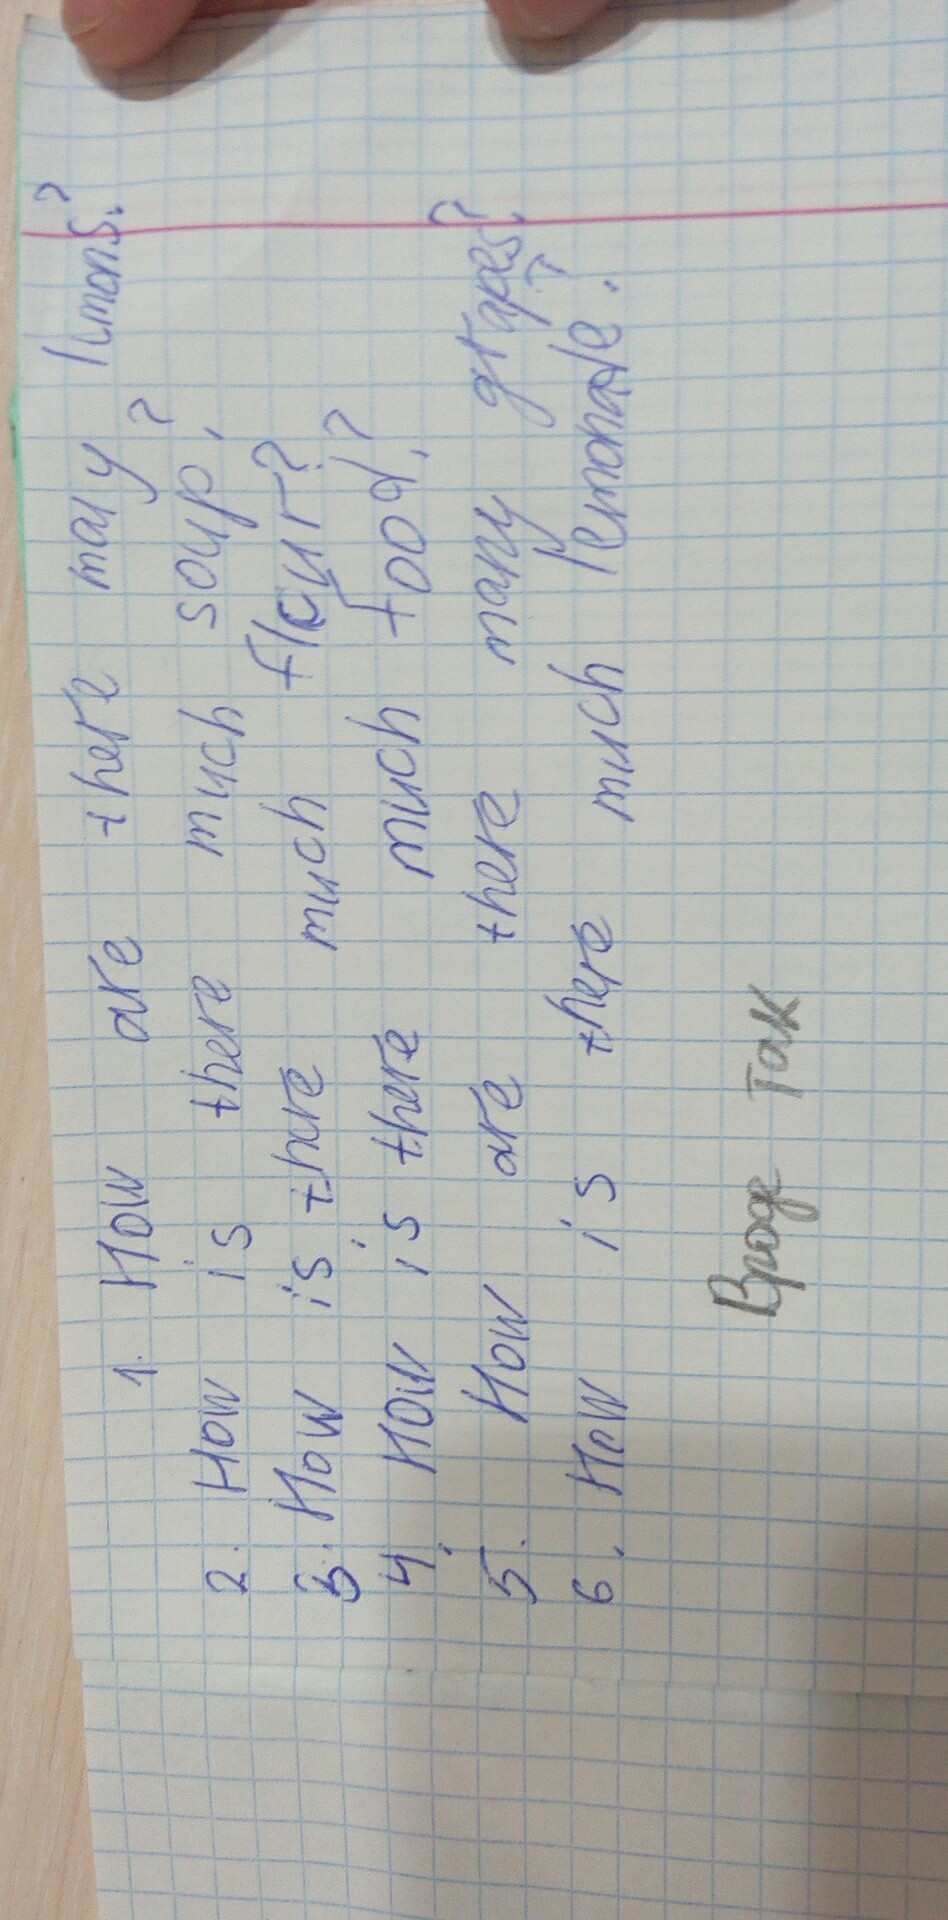 1. How are there many limons?
2. How is there much soup?
3. How is there much flour?
4. How is there much food?
5. How are there many grapes?
6. How is there much lemonade?
Вроде так